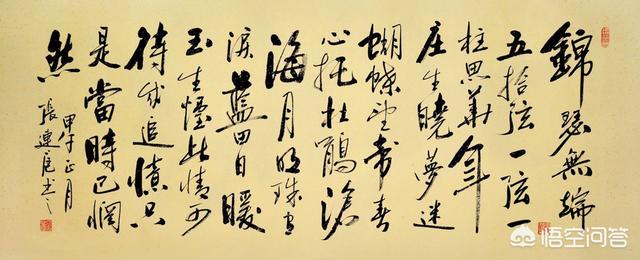 錦瑟無端
五拾弦一弦一
柱思華年
庄生曉夢迷
蝴蝶望帝春
心托杜鵑滄
海月明珠有
淚藍田日暖
玉生煙此情可
待成追憶只
是當時已惘
然
甲午正月
張連書之
悟空问答